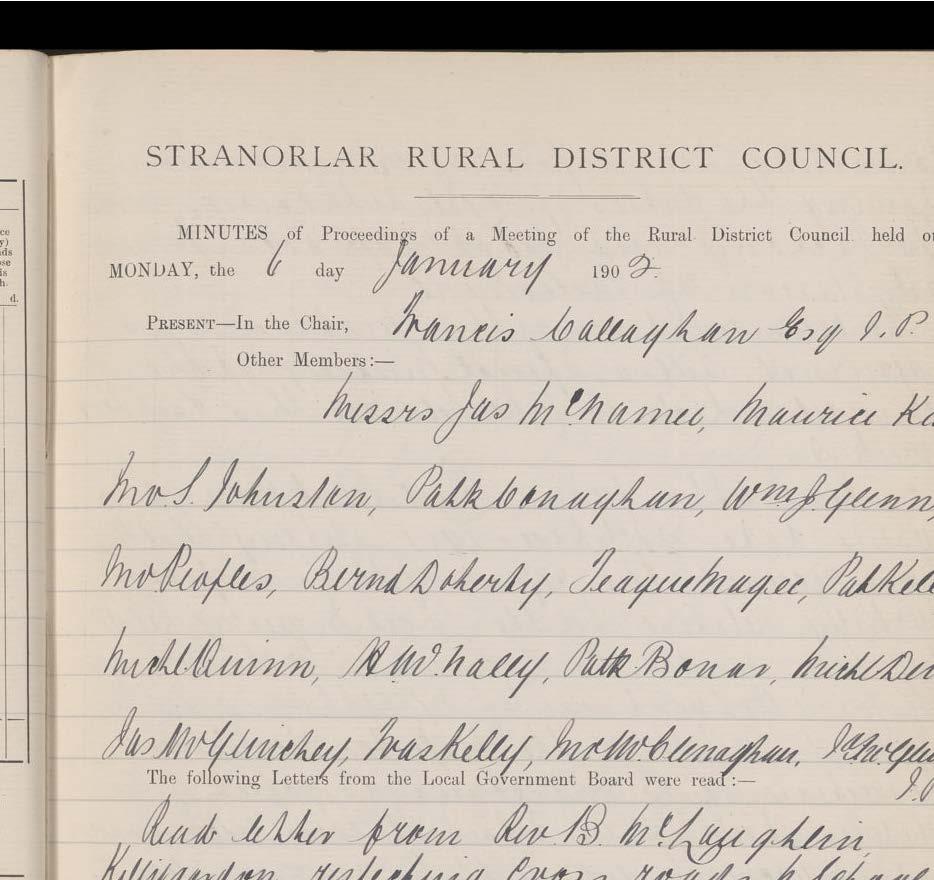 STRANORLAR RURAL DISTRICT COUNCIL.
MINUTES of Proceedings of a Meeting of the Rural District Council held
MONDAY, the 6 day January 1902.
PRESENT—In the Chair, Francis Callaghan Esq J.P.
Other Members:—
Messrs Jas McNamee, Maurice
Jno S. Johnston, Patk Conaghan, Wm J. Glenn,
Jno Peoples, Bernd Doherty, Teague Magee, Pat
Michl Quinn, Patk Bonar, Michl
Jas McGlinchey, Fras Kelly, McClenaghan,
The following Letters from the Local Government Board were read:—
Read letter from Rev. B. McLaughlin,
respecting Cross roads School